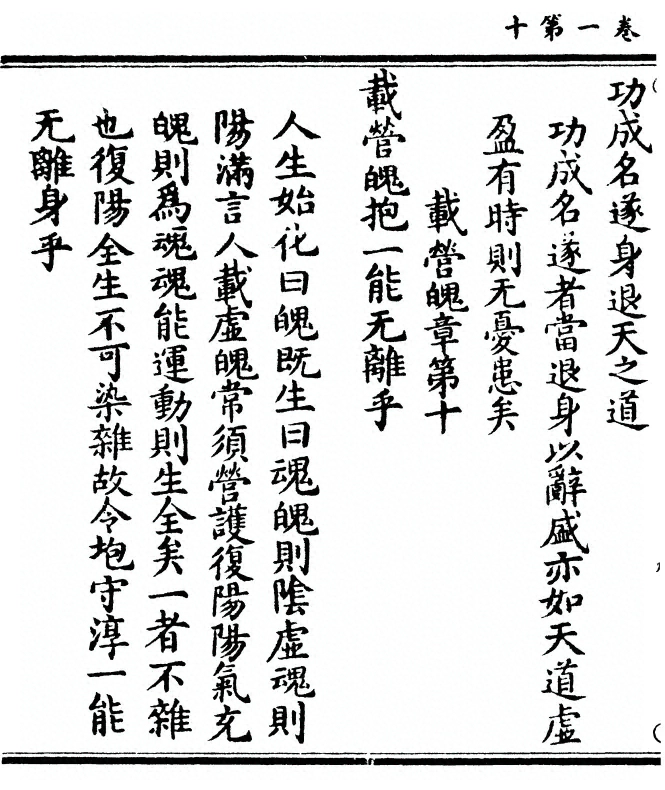 卷一第十
功成名遂身退天之道
功成名遂者當退身以辭盛亦如天道虛
盈有時則无憂患矣
載營魄章第十
載營魄抱一能无離乎
人生始化曰魄既生曰魂魄則陰虛魂則
陽滿言人載虛魄常須營護復陽陽氣充
魄則為魂魂能運動則生全矣一者不雜
也復陽全生不可染雜故令抱守淳一能
无離身乎